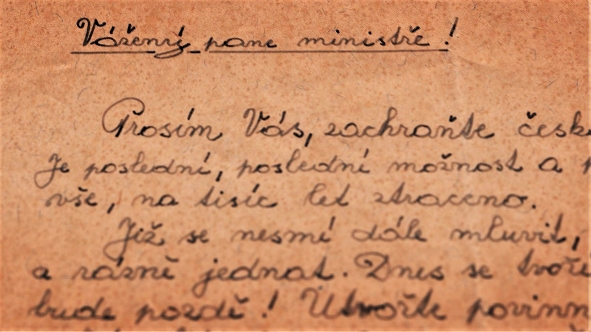 Vážený pane ministře!
Prosím Vás, zachraňte česk
Je poslední, poslední možnost a
vše, na tisíc let ztraceno.
Již se nesmí dále mluvit,
a rázně jednat. Dnes se tvoří
bude pozdě! Utvořte povinn